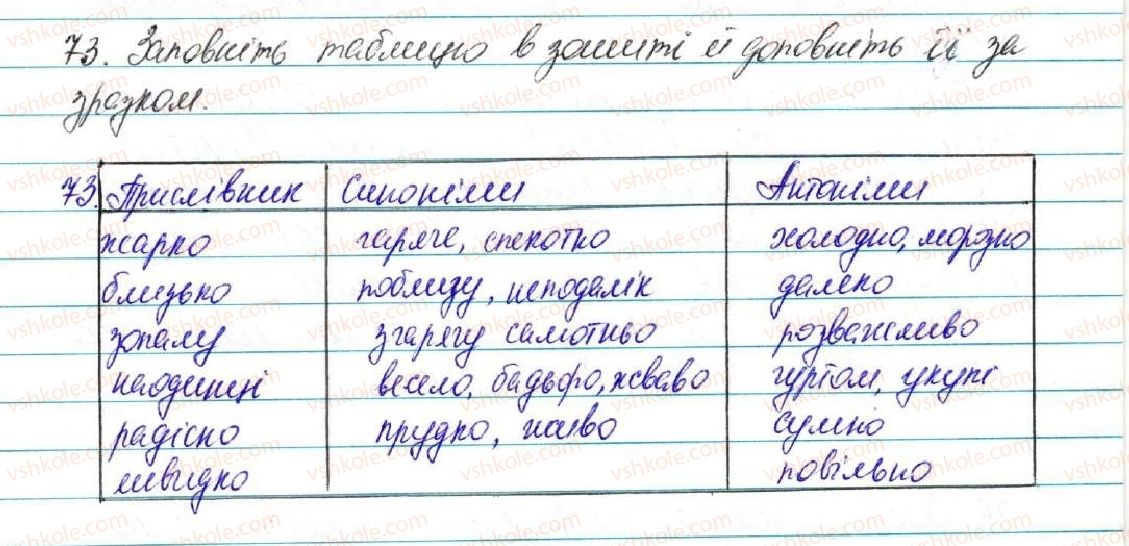 73. Заповніть таблицю в зошиті й доповніть її за
зразком.
73. Прислівник Синоніми Антоніми
жарко гаряче, спекотно холодно, морозно
близько поблизу, неподалік далеко
зопалу згарячу самотньо розважливо
наодинці весело, бадьоро, жваво гуртом, укупі
радісно прудко, жваво сумно
швидко повільно